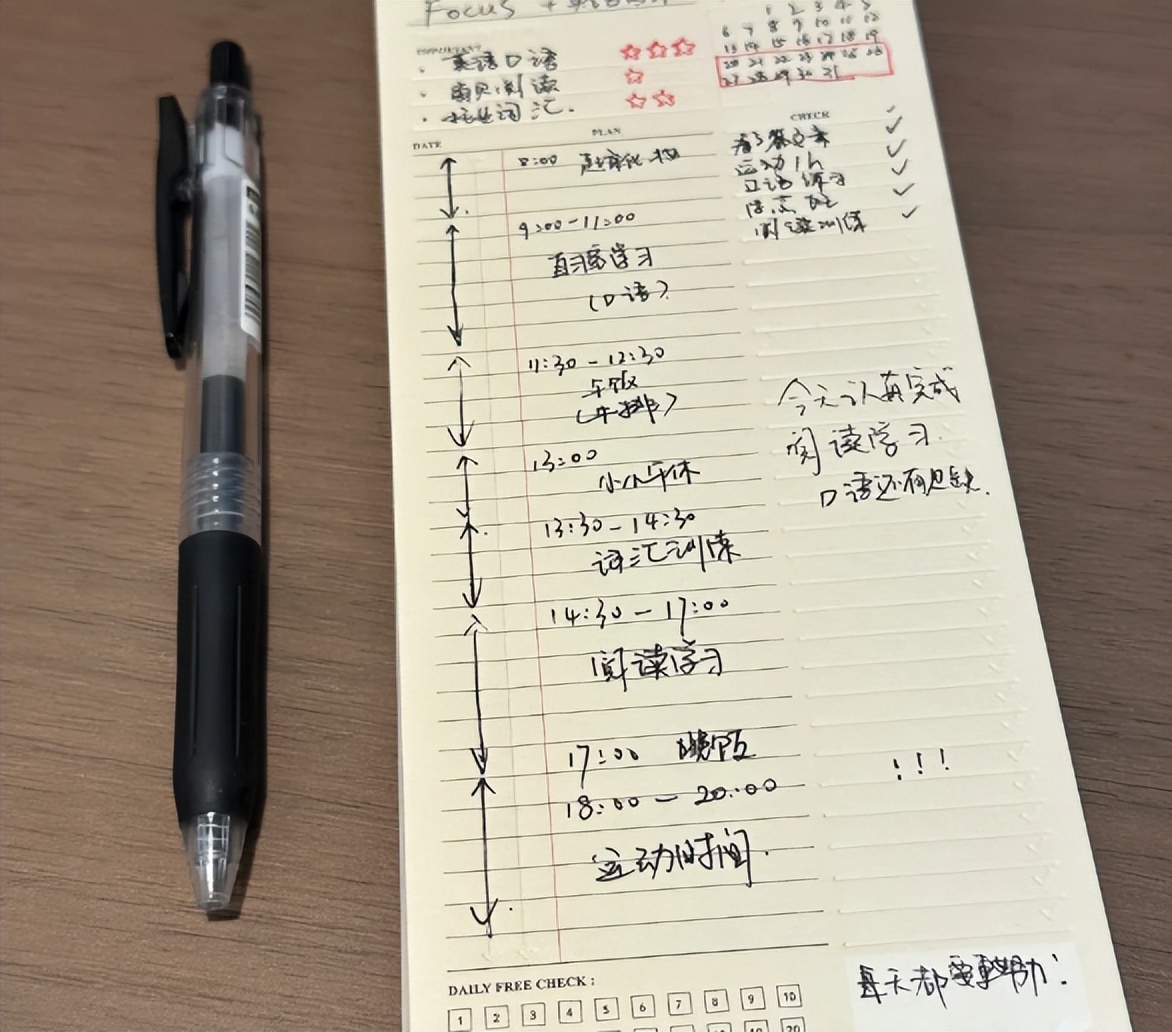 Focus +
1 2 3 4 5
6 7 8 9 10 11 12
13 14 15 16 17 18 19
20 21 22 23 24 25 26
27 28 29 30 31
IMPORTANT
· 英语口语
· 阅读
· 词汇.
DATE
PLAN
CHECK
8:00
运动1h
口语练习
阅读训练
9:00-11:00
自习室学习
(口语)
11:30-12:30
午饭
(牛排)
13:00
小小午休
13:30-14:30
词汇训练
14:30-17:00
阅读学习
17:00 晚饭
18:00-20:00
运动时间.
今天认真完成
阅读学习.
口语还有欠缺.
!!!
每天都要更努力!
DAILY FREE CHECK :
1 2 3 4 5 6 7 8 9 10
19 20